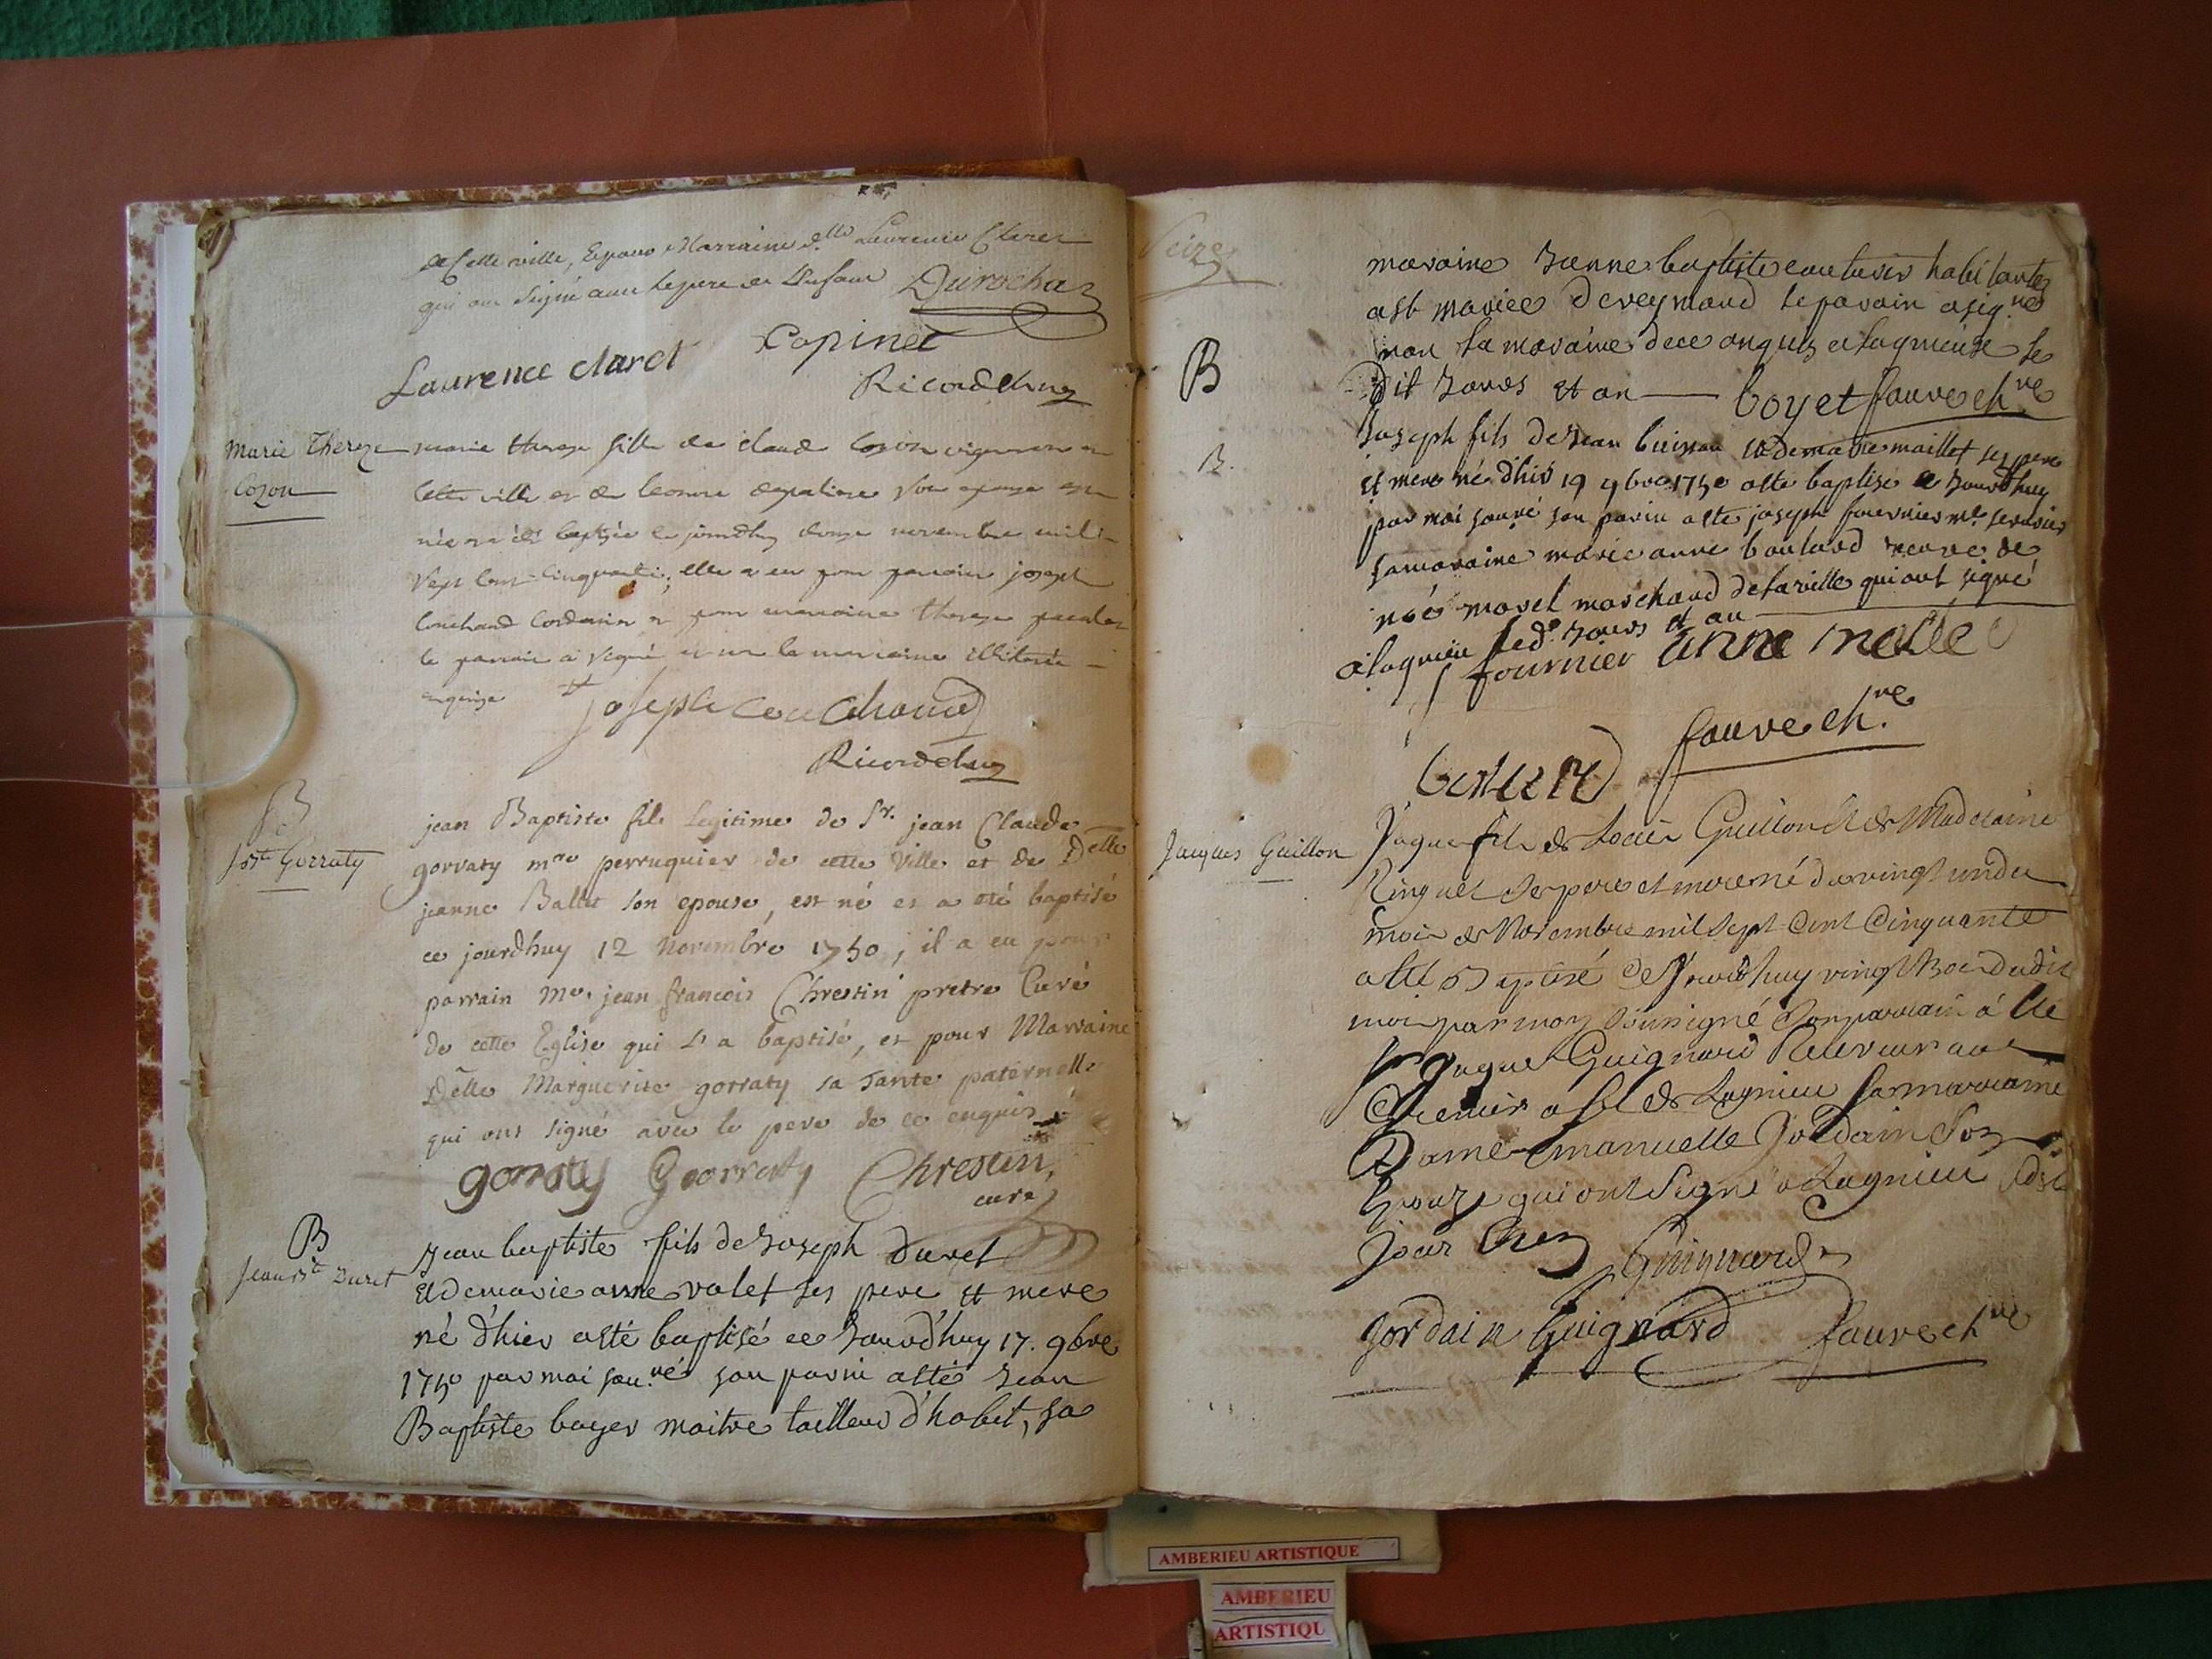 de Cette ville, Epouse Marraine d.lle Laurence Claret
qui ont Signé avec le pere de L'Enfant Durochaz
Copinet
Laurence claret
Ricordelung
Marie Thereze
Cozon
marie thereze fille de claude Cozon vigneron en
Cette ville et de Son epouse est
née et a été baptisée ce jourd'huy douze novembre mil
Sept Cent Cinquante; elle a eu pour parrain joseph
Couchoud Cordonnier et pour marraine thereze
le parrain a signé et non la marraine illiterée
enquise
joseph Couchoud
Ricordelung
B
J Bte Gorraty
jean Baptiste fils Legitime de Sr. jean Claude
gorraty mre perruquier de cette Ville et de Delle
jeanne Ballet son epouse, est né et a été baptisé
ce jourdhuy 12 Novembre 1750; il a eu pour
parrain Me. jean francois Chrestin pretre Curé
de cette Eglise qui L'a baptisé, et pour Marraine
Delle Marguerite gorraty sa Tante paternelle
qui ont signé avec le pere de ce enquis
gorraty Gorraty Chrestin,
curé
B
Jean Bte Duret
Jean baptiste fils de Joseph Duret
et de marie anne valet ses pere et mere
né d'hier a esté baptisé ce Jourd'huy 17. 9bre
1750 par moi sou.né son parin a esté Jean
Baptiste boyer maitre tailleur d'habit, sa
Seize
maraine Janne baptiste couturier habitante
a St marice de reymand le parain a sig.né
non la maraine de ce enquis a lagnieu le
B
Dit Jours et an boyet fauve ch.ne
B.
Joseph fils de Jean buisson et de marie maillet ses pere
et mere né d'hier 19 9bre 1750 a esté baptisé ce Jourdhuy
par moi sou.né son parin a esté joseph fournier me serurier
sa maraine marie anne boulard veuve de
noé morel marchand de la ville qui ont signé
a lagnieu led. Jours et an
fournier Anne
fauve ch.ne
Jacques Guillon
Jaque fils de Guillon et de Madelaine
Ringuet Ses pere et mere né du vingt un du
mois de Novembre mil sept Cent Cinquante
a été Baptisé Cejourdhuy vingt trois dudit
mois par moy Soussigné Son parrain a été
Jaque Guignard Receveur au
Grenier a sel de Lagnieu sa marraine
Dame Emanuelle Jordain Son
Epouse qui ont Signé a Lagnieu
Jour et an
Guignard
Jordain Guignard fauve ch.ne
AMBERIEU ARTISTIQUE
AMBERIEU
ARTISTIQU